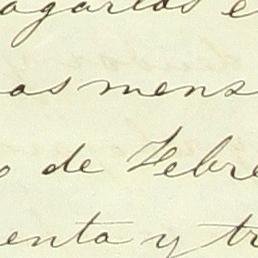 agarlos e
os mens
o de Febre
enta y tr